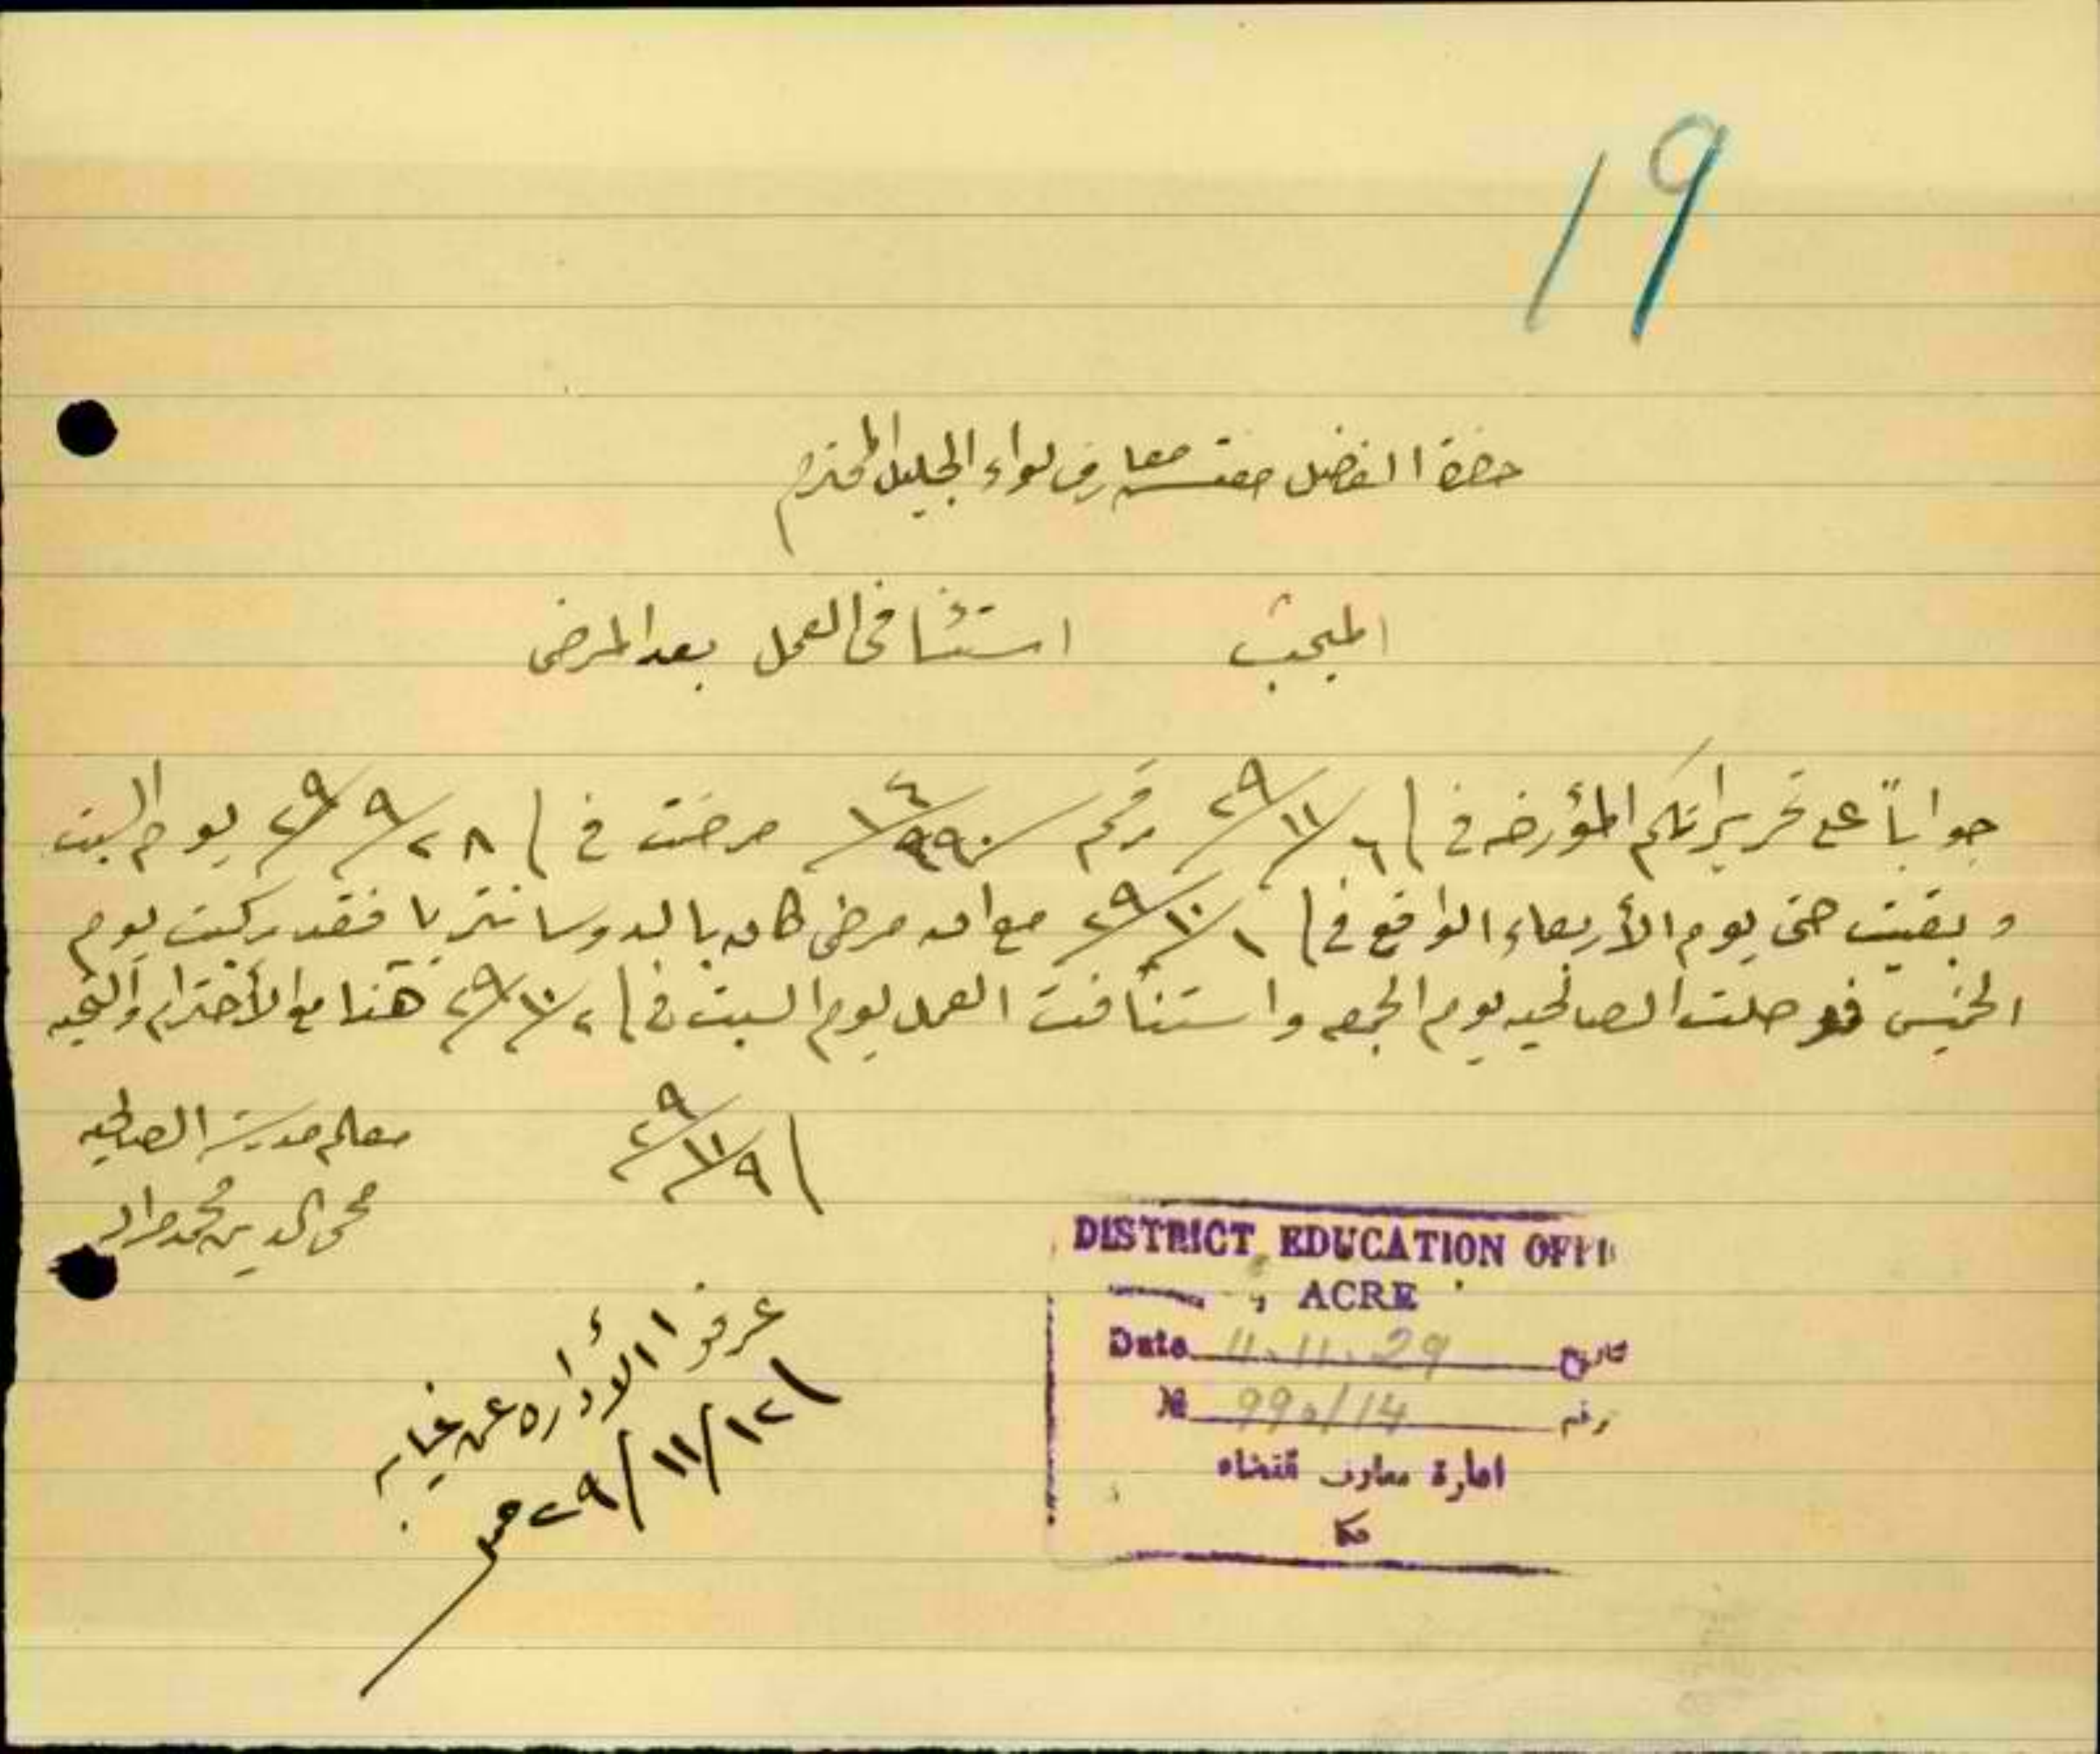 19
حضرة الفاضل مفتش معارف لواء الجليل المحترم
المبحث استئنافي العمل بعد المرض
جواباً على تحريراتكم المؤرخه في ٦/١١/٢٩ رقم ٩٩٠/١٤ مرضت في ٢٨/٩/٢٩ يوم السبت
وبقيت حتى يوم الأربعاء الواقع في ١/١٠/٢٩ مع ان مرضي كان بالدوسانتريا فقد ركبت يوم
الخميس فوصلت الصالحيه يوم الجمعه واستنأفت العمل يوم السبت في ٢/١٠/٢٩ هذا مع الأحترام والتحيه
٩/١١/٢٩ معلم مدرسة الصالحيه
محي الدين محمد مراد
عرفوا الأداره عن غيابه
١٢/١١/٢٩
DISTRICT EDUCATION OFFI
ACRE
Date 11.11.29 تاريخ
№ 990/14 رقم
ادارة معارف قضاء
عكا